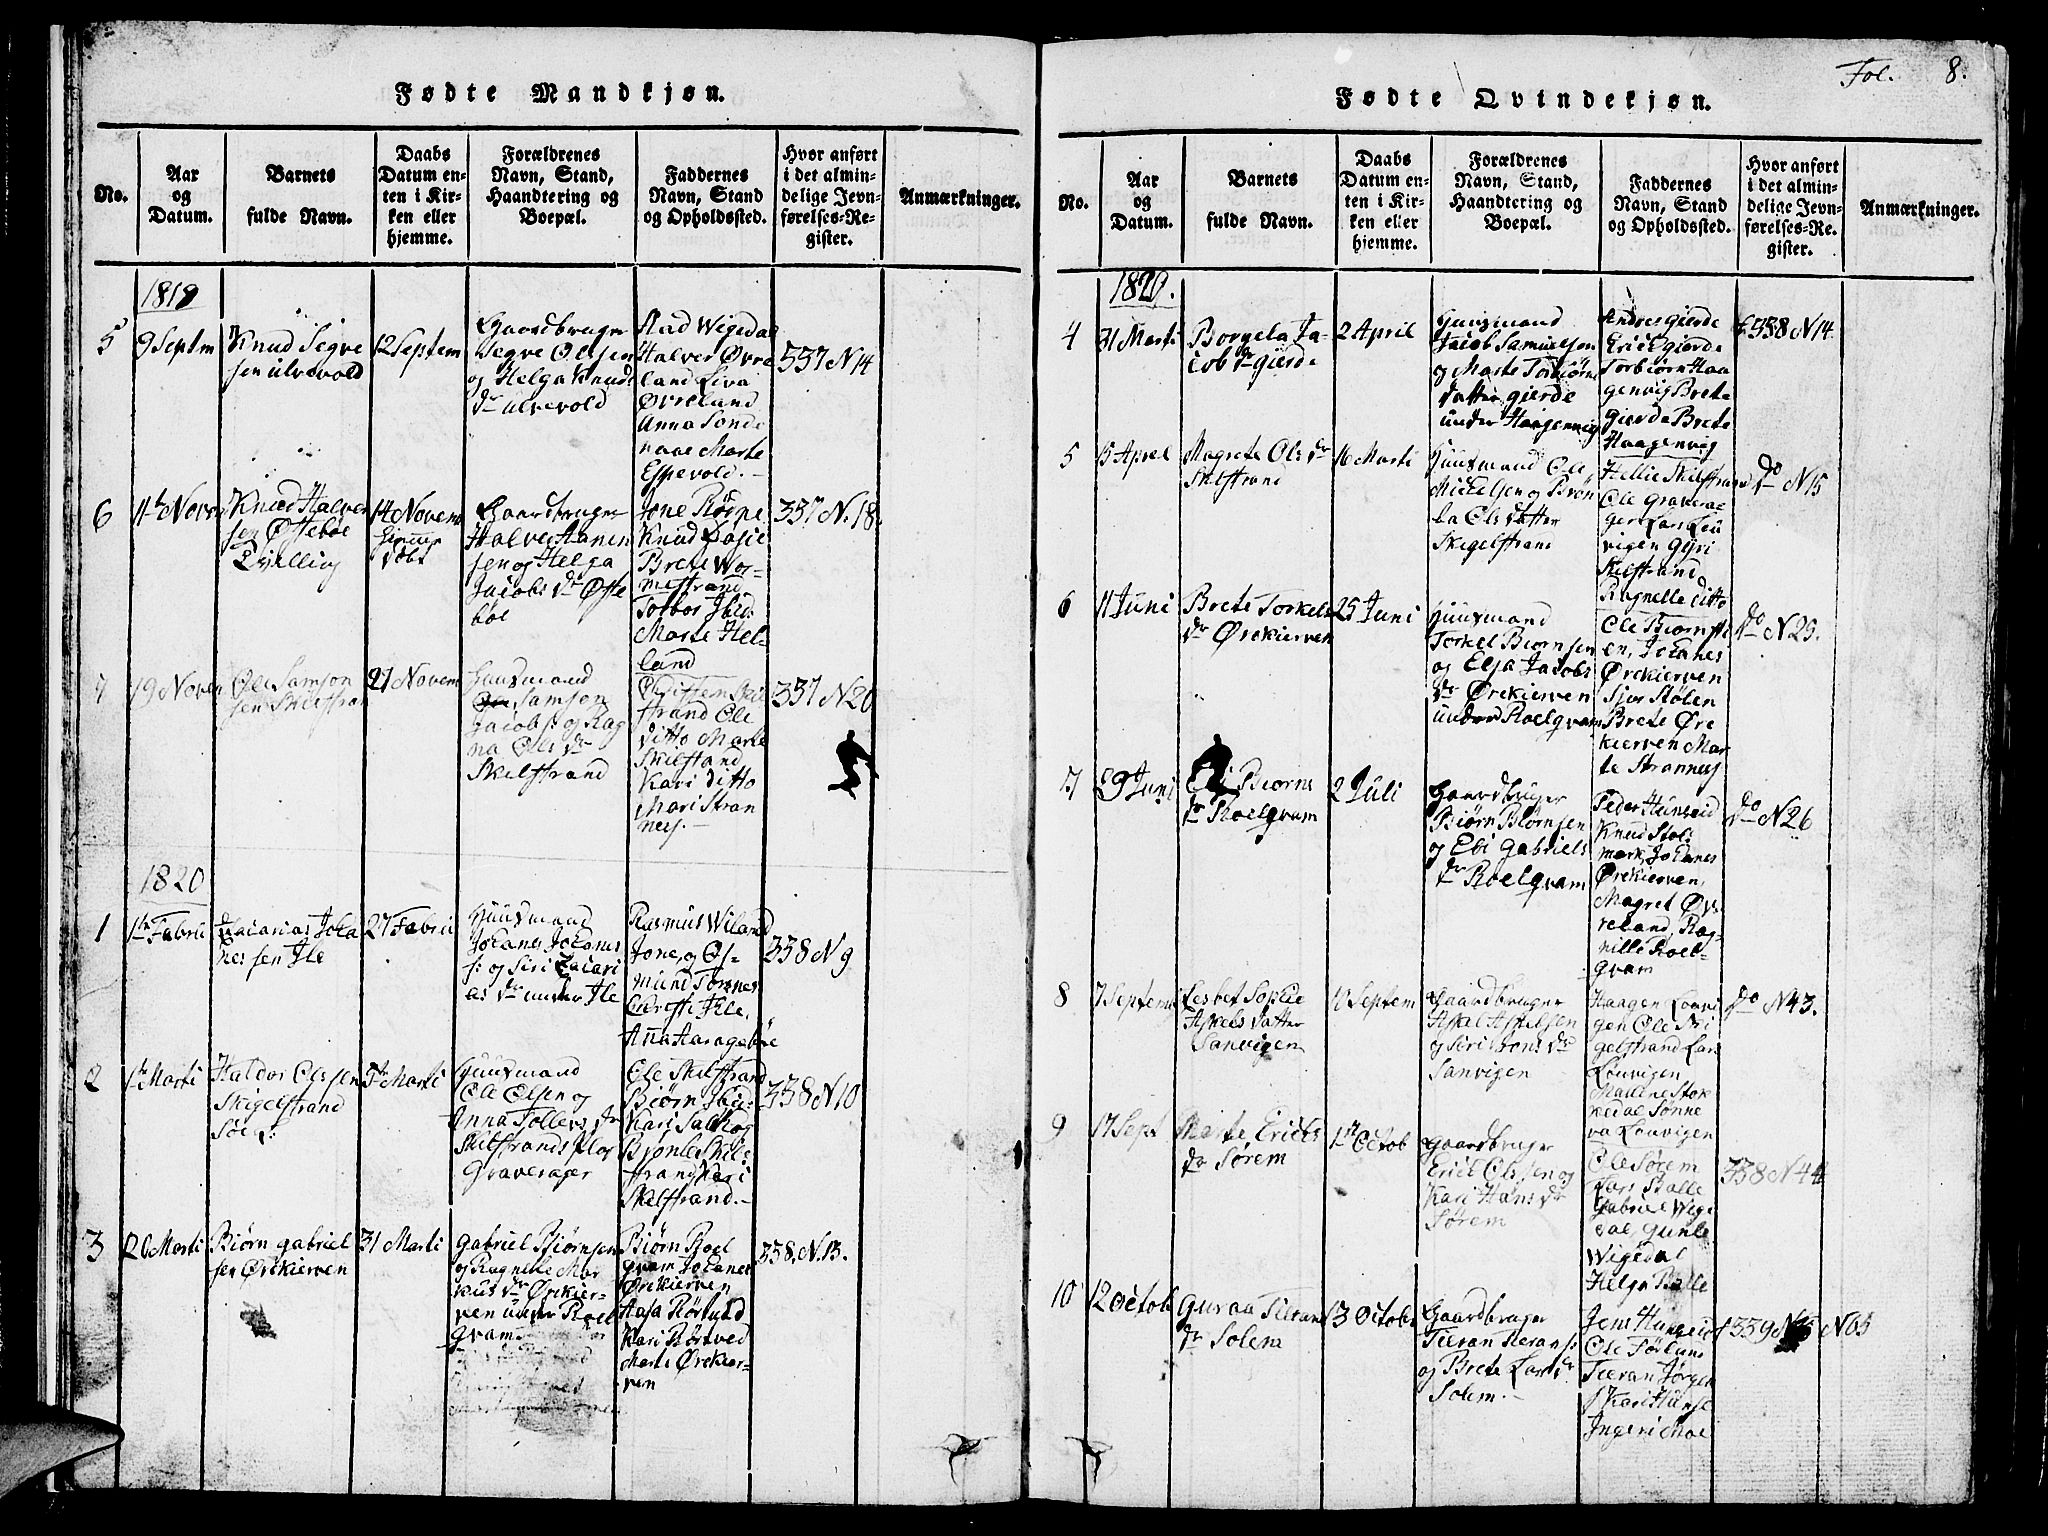 Fol. 8.
Fødte Mandkjøn.
No.
Aar
og
Datum.
Barnets
fulde Navn.
Daabs
Datum en-
ten i Kir-
ken eller
hjemme.
Forældrenes
Navn, Stand,
Haandtering og
Boepæl.
Faddernes
Navn, Stand
og Opholdssted.
Hvor anført
i det almin-
delige Jevn-
førelses-Re-
gister.
Anmærkninger.
1819
5
9 Septm
Knud Segve
sen ulvevold
12 Septem
Gaardbruger
Segve Olsen
og Helga Knuds
dr ulvevold
Wigedal
Halver Øvre
land Liva
Øvreland
Anna Sonde
naae Marte
Espevold.
337 N 14
6
11te Noven
Knud Halver
sen Østebøe
Tvilling
14 Novem
Gaardbruger
Halver
sen og Helga
Jacobs dr Øste
bøe
Jone
Knud
Brete Wor-
mestrand
Torbor Ibid:
Marte Hel-
land
337 N. 18
7
19 Noven
Ole Samson
sen Skilstran
21 Novem
Huusmand
Samson
Jacobs: og Rag
na Ols dr
Skilstrand
strand Ole
ditto Marte
Skilstrand
Kari ditto
Mari Stran
nes.
337 N 20
1820
1
1te Fabru
Zacarias Joha
nes sen Ile
27 Fabru
Huusmand
Johanes Johanes
s: og Siri Zacari
as dr under Ile
Rasmus Wiland
Jone, og Os-
mund Tornes
Christi Ile,
Anna Aaragebøe
338 N 9
2
1te Marti
Haldor Olssen
Skigelstrand
5te Marti
Huusmand
Ole Olsen og
Anna Tollevs dr
Skilstrands
Graverager
Ole Skilstrand
Biørn Ibid:
Kari
Skil-
strand Kari
Skilstrand.
338 N 10
3
20 Marti
Biørn gabriel
sen Ørekierven
31 Marti
Gabriel Biørnsen
og Ragnelle Mar
kus dr Ørekier-
ven under Roel
gvam
Biørn Roel
gvam Johanes
Ørekierven
Kari
Marte Ørekier-
ven
338. N. 13.
Fødte Qvindekjøn.
No.
Aar
og
Datum.
Barnets
fulde Navn.
Daabs
Datum en-
ten i Kir-
ken eller
hjemme.
Forældrenes
Navn, Stand,
Haandtering og
Boepæl.
Faddernes
Navn, Stand
og Opholdssted.
Hvor anført
i det almin-
delige Jevn-
førelses-Re-
gister.
Anmærkninger.
1820.
4
31 Marti
Borgela Ja-
cob dr gierde
2 April
Huusmand
Jacob Samuelsen
og Marte Torbiørns
datter gierde
under Haagenvig
Andres gierde
Erick gierde
Torbiørn Haa
genvig Brete
gierde Brete
Haagenvig
338 N 14
5
15 Aprel
Magrete Ols dr
Skilstrand
16 Marti
Huusmand Ole
Mickelsen og Brøn
la Ols datter
Skigelstrand
Hellie Skilstrand
Ole Gravera-
ger Lars Lou
vigen Gyri
Skilstrand
Ragnelle ditto
do N 15
6
11 Juni
Brete Torkels
dr Ørekierven
25 Juni
Huusmand
Torkel Biørnsen
og Elsa Jacobs
dr Ørekierven
under Roelgvam
Ole
en, Johanes
Ørekierven
Stølen
Brete Øre
kierven Mar
te Strannes
do N 25.
7
29 Juni
Biørns
dr Roelgvam
2 Juli
Gaardbruger
Biørn Biørnsen
og Eli Gabriels
dr Roelgvam
Peder Hunseid
Knud Stol
mark, Johanes
Ørekierven,
Magret Øv
reland, Rag-
nille Roel-
gvam
do N 26
8
7 Septem
Lesbet Sophie
Askels datter
Sanvigen
10 Septem
Gaardbruger
Askel Askelsen
og Siri dr
Sanvigen
Haagen Louvi
gen Ole Ski
gelstrand Lars
Louvigen
Malene Stok
kedal Sønne
va Louvigen
do N 43.
9
17 Sept
Marte Ericks
dr Sørem
1te Octob
Gaardbruger
Erick Olssen og
Kari Hans dr
Sørem
Ole Sørem
Lars Balle
Gabriel Wige
dal, Gunle
Wigedal
Helga Balle
338 N 44
10
12 Octob
Guraa Tieran
dr Solem
13 Octob
Gaardbruger
Tieran Tierans:
og Brete Lars dr
Solem.
Jens
Ole
Tieran Jørgen
s Kari
Ingeri Moe
339 N 65